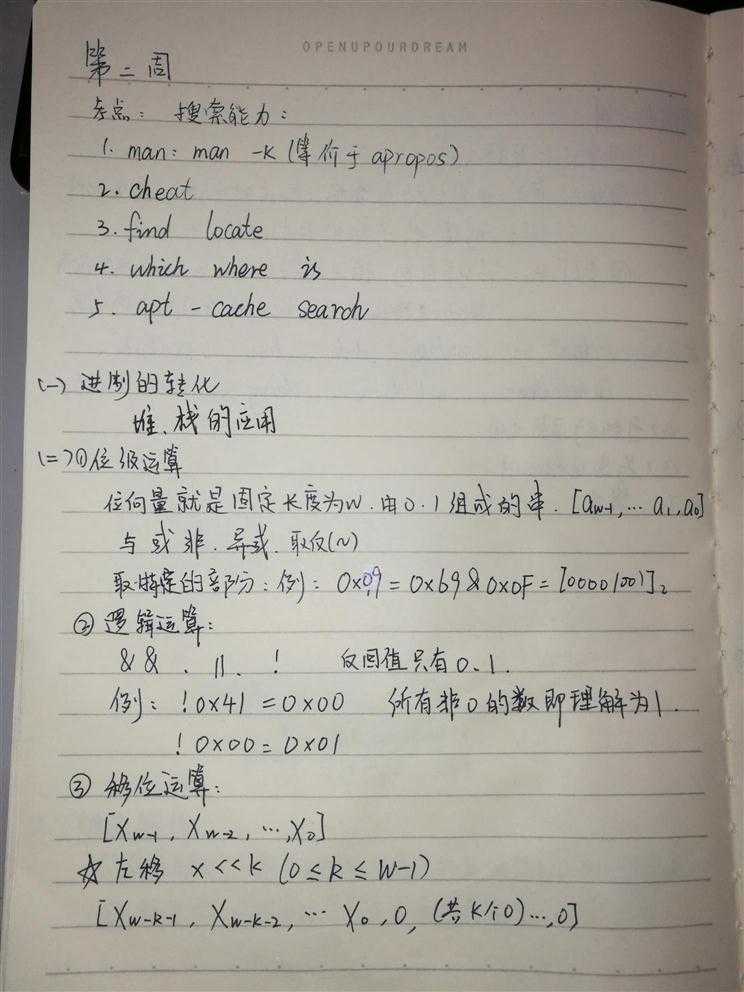 OPENUPOURDREAM
第二周
考点：搜索能力：
1. man：man -k (等价于 apropos)
2. cheat
3. find locate
4. which where is
5. apt - cache search
(一) 进制的转化
堆、栈的应用
(二) ①位级运算
位向量就是固定长度为w.由0.1组成的串.[aw-1,… a1,a0]
与 或 非.异或.取反(~)
取特定的部分：例：0x09 = 0x69 & 0x0F = [00001001]2
② 逻辑运算：
&& . || . ! 返回值只有0.1.
例：!0x41 = 0x00 所有非0的数即理解为1.
!0x00 = 0x01
③ 移位运算：
[Xw-1, Xw-2, …,X0]
☆ 左移 x<<k (0≤k≤w-1)
[Xw-k-1, Xw-k-2, … X0,0,(共k个0)…,0]